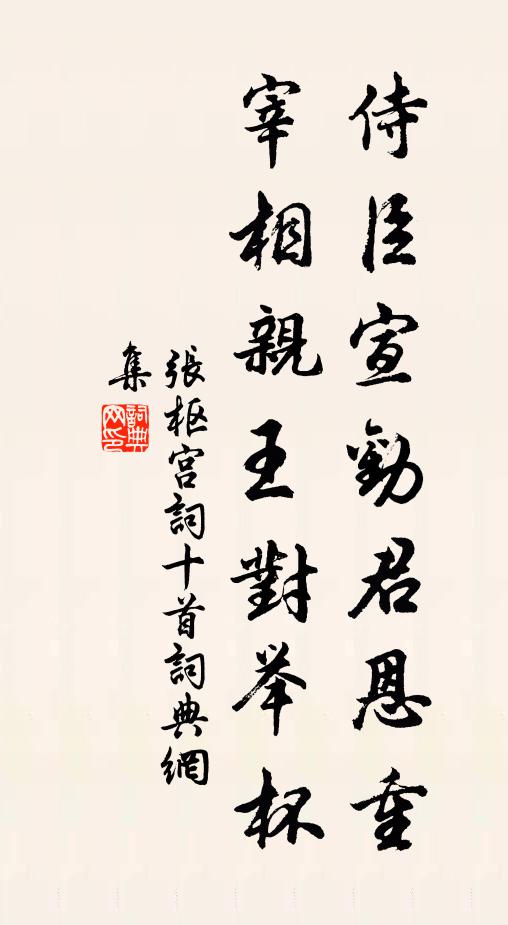 侍臣宣勸君恩重
宰相親王對举杯
張枢宫詞十首詞典網
集
詞典网印